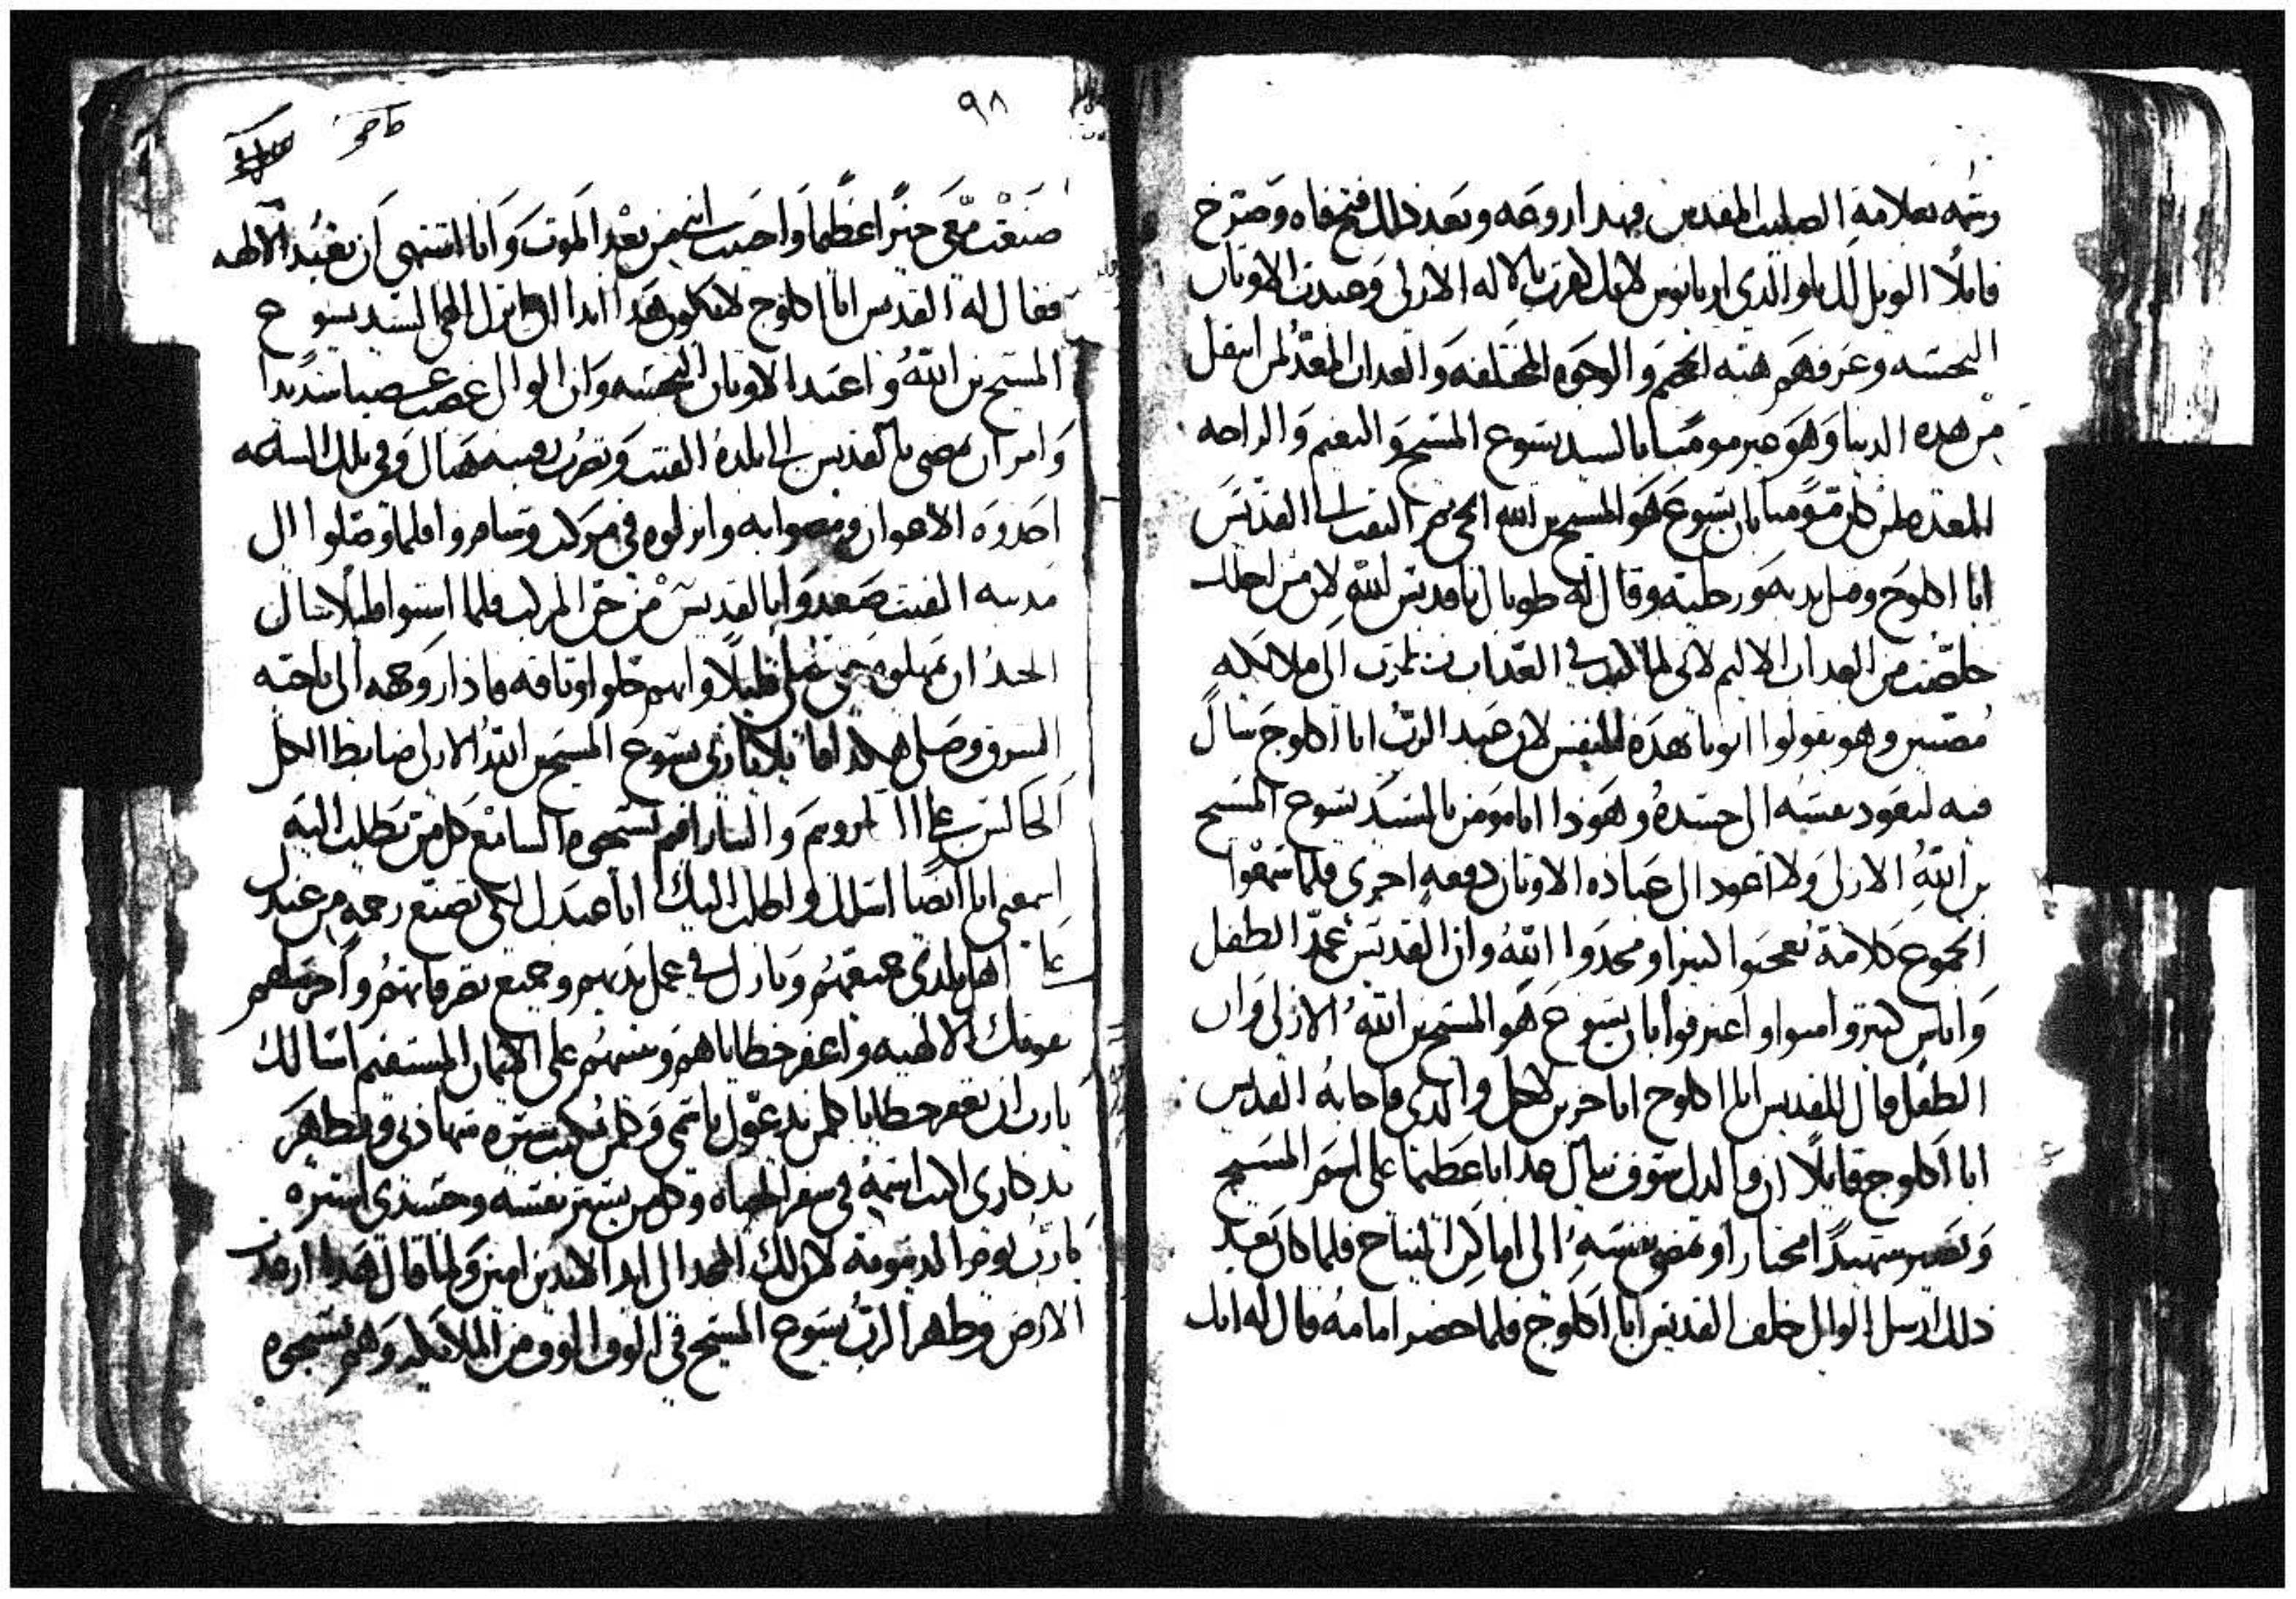 رشمه بعلامة الصليب المقدس فهدا روحه وبعد ذلك فتح فاه وصرخ
قايلا الويل لك ياوالدي اريانوس لانك كفرت بالاله الازلي وعبدت الاوتان
النجسه وعرفهم هيه الجحيم والوجوه المختلفه والعداب المعد لمن انتقل
من هده الدنيا وهو غير مومنا بالسيد يسوع المسيح والنعيم والراحه
المعده لمن كان مومنا بان يسوع هو المسيح بن الله الحي ثم التفت الى القديس
ابا اكلوج وقبل يديه ورجليه وقال له طوباك ياقديس الله لان من اجلك
خلصت من العداب الاليم لاني لما كنت في العداب امرت الى ملايكه
مضيين وهو يقولوا اتونا بهذه النفس لان عبد الرب ابا اكلوج سال
فيه ليعود نفسه الى جسده وهوذا انا مومن بالسيد يسوع المسيح
بن الله الازلي ولا اعود الى عباده الاوتان دفعه اخرى فلما سمعوا
الجموع كلامه تعجبوا كثيرا ومجدوا الله وان القديس عمد الطفل
واناس كتير وامنوا واعترفوا بان يسوع هو المسيح بن الله الازلي وان
الطفل قال للقديس ابا اكلوج انا حزين لاجل والدي فاجابه القديس
ابا اكلوج قايلا ان والدك سوف ينال عدابا عظيما على اسم المسيح
ويصير شهيدا مختارا وتمضي نفسه الى اماكن النياح فلما كان بعد
ذلك ارسل الوالي خلف القديس ابا اكلوج فلما حضر امامه قال له انك
٩٨
صنعت معي خيرا عظيما واحييت ابني من بعد الموت وانا اشتهي ان تعبد الالهه
فقال له القديس ابا اكلوج لا يكون هدا ابدا اني اترك الهي السيد يسوع
المسيح بن الله واعبد الاوتان النجسه وان الوالي غضب غضبا شديدا
وامر ان يمضي بالقديس الى بلدة القيت وتضرب رقبته هناك وفي تلك الساعه
اخدوه الاعوان ومضوا به وانزلوه في مركب وسافروا فلما وصلوا الى
مدينه القيت صعدوا بالقديس من المركب فلما استوا قليلا سال
الجند ان يمهلوه حتى يصلي قليلا وانهم حلوا وتاقه فادار وجهه الى ناحيه
الشرق وصلى هكدا قايلا ياربي يسوع المسيح بن الله الازلي ضابط الكل
الجالس على الشاروبيم والسارافيم تسبحوه السامع كل من يطلب اليه
اسمعني انا ايضا اسالك واطلب اليك انا عبدك لكي تصنع رحمه من عندك
على اهل بلدي جميعهم وبارك في عمل يديهم وجميع تصرفاتهم واحرسهم
بقوتك الالهيه واغفر خطاياهم وتبتهم على الايمان المستقيم اسالك
يارب ان تغفر خطايا كلمن يدعوك باسمي وكلمن يكتب سيره شهادتي ويظهر
تدكاري اكتب اسمه في سفر الحياه وكلمن يستر نفسه وجسدي استره
يارب يوم الدينونه لان لك المجد الى ابد الابدين امين ولما قال هدا ارتعدت
الارض وظهر الرب يسوع المسيح في الوف الوف من الملايكه وهم يسبحوه